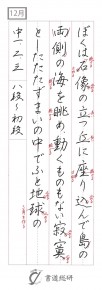 12月
ぼくは石像の立つ丘に座り込んで島の
両側の海を眺め、動くものもない寂寞
としたたたずまいの中でふと地球の
中一・二・三 八段〜初段
書道総研